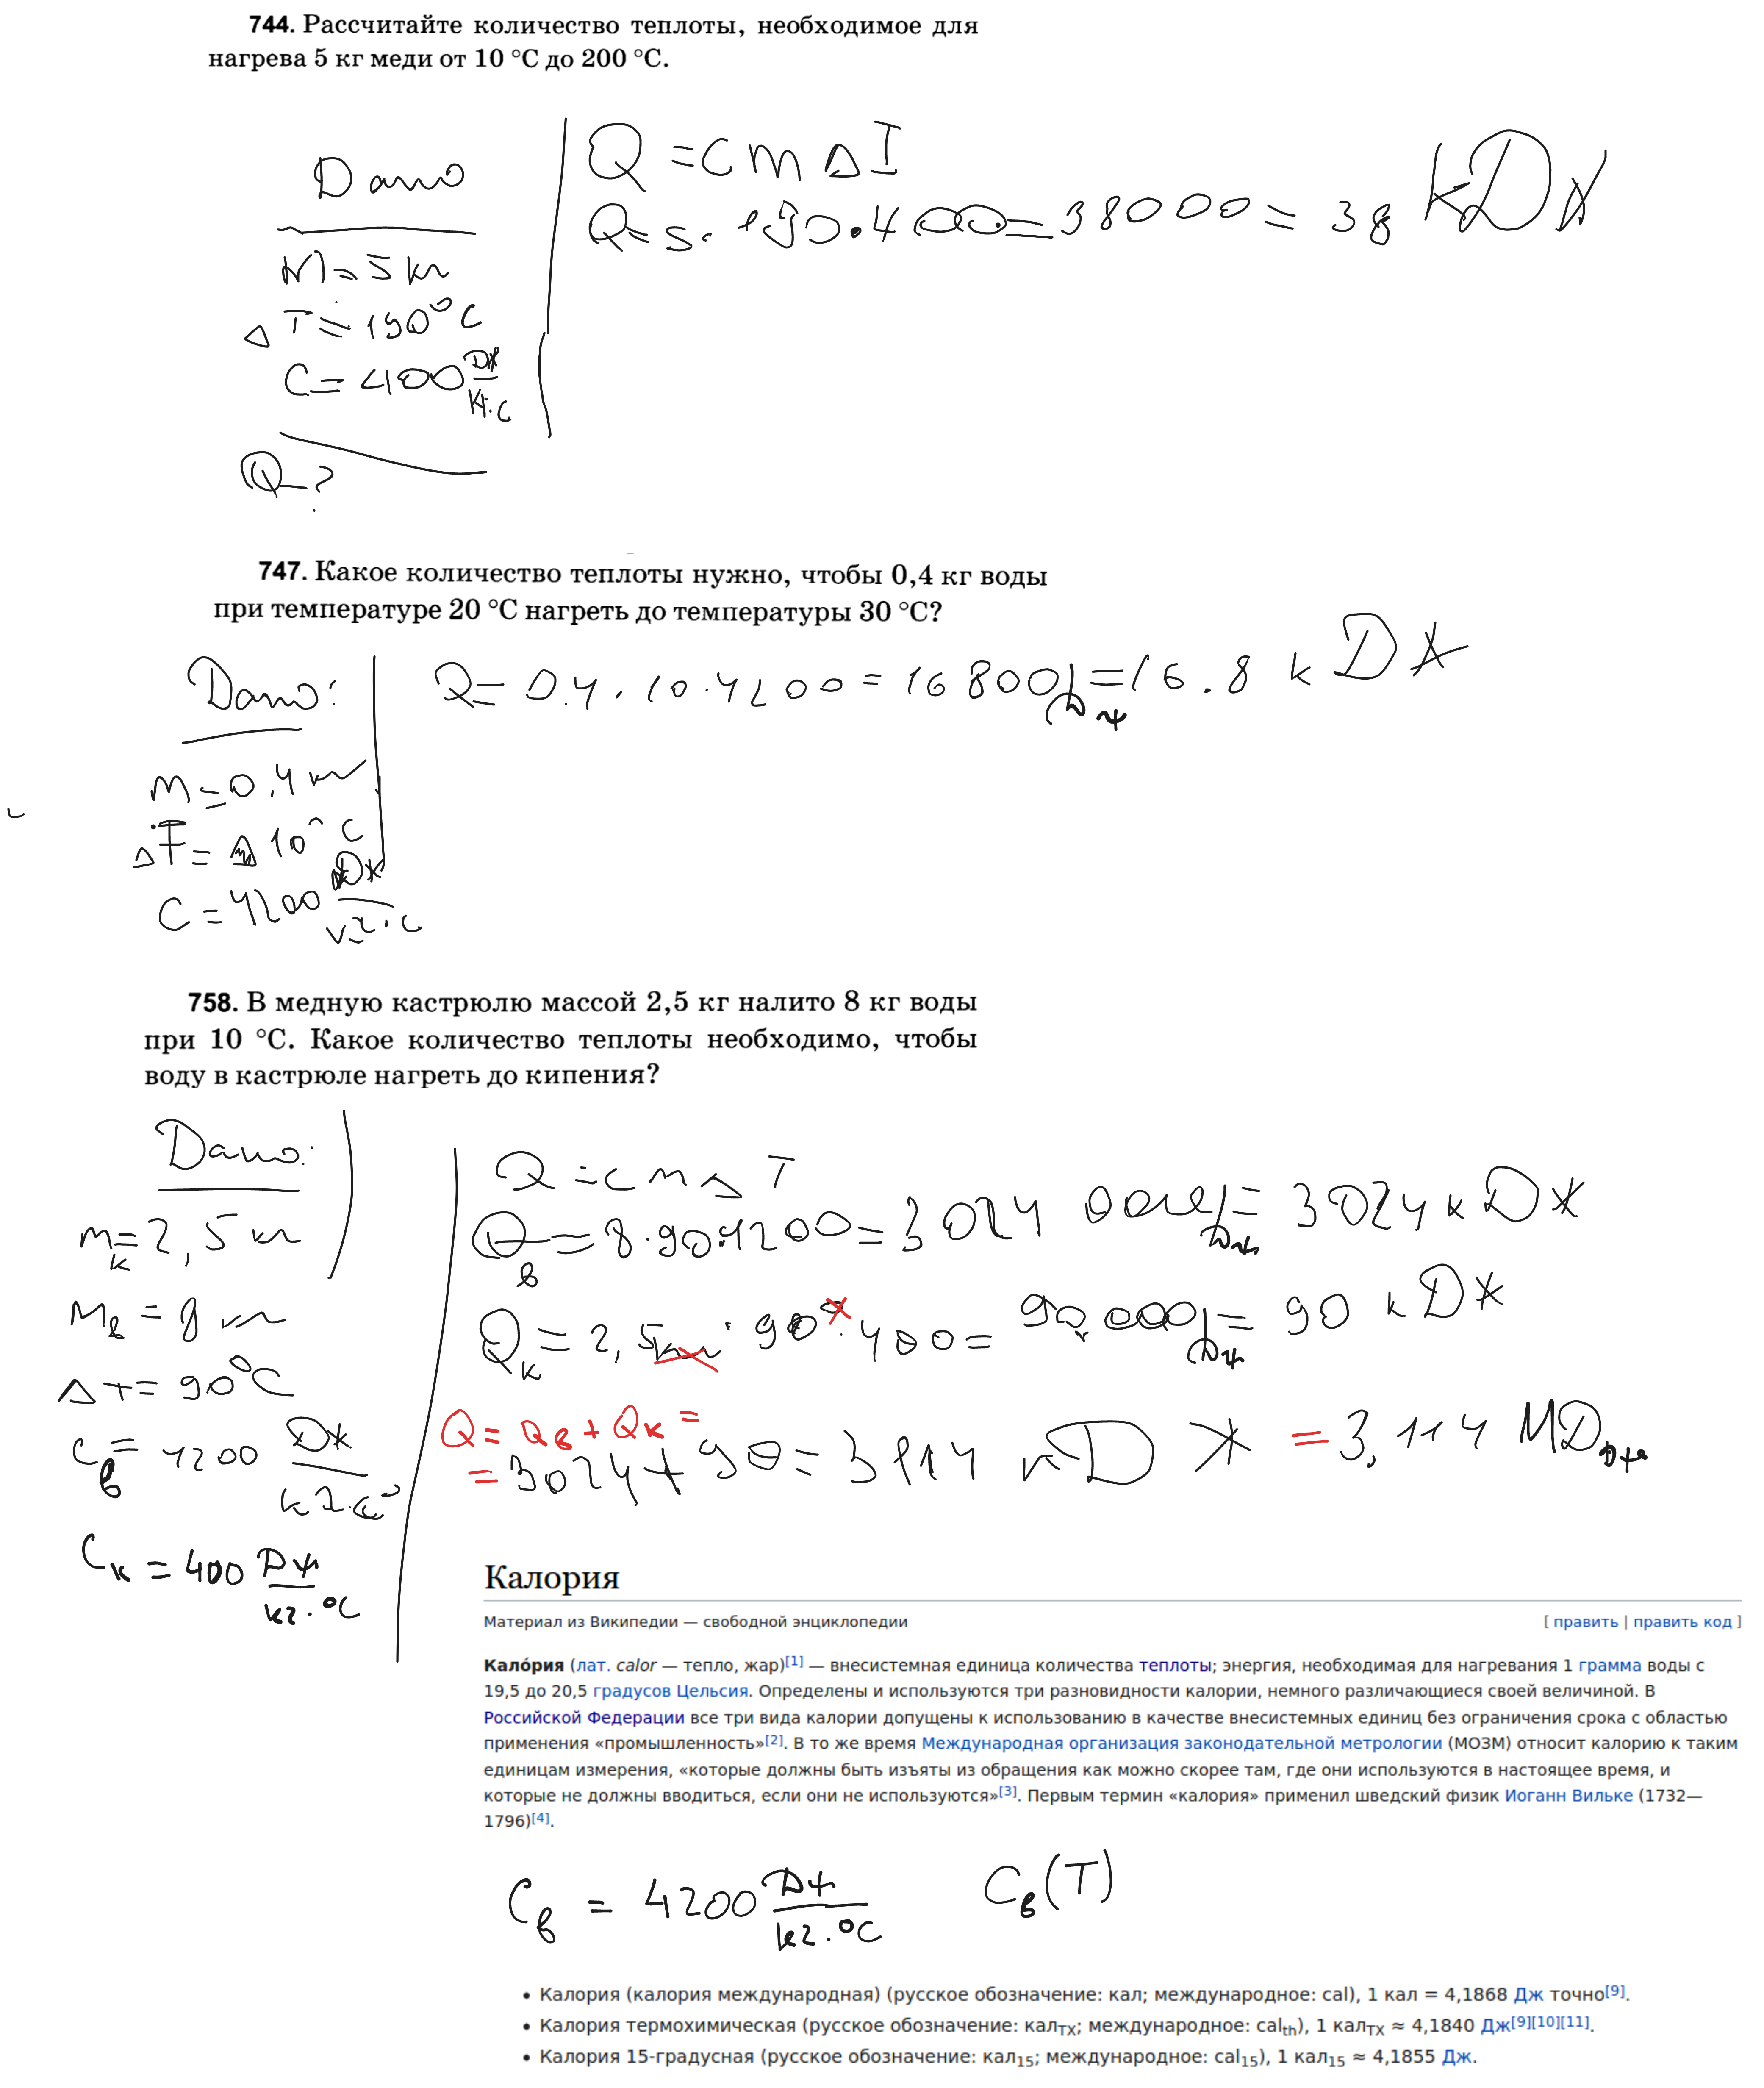 744. Рассчитайте количество теплоты, необходимое для
нагрева 5 кг меди от 10 °С до 200 °С.
Дано
m = 5 кг
Δ T = 190°C
C = 400 Дж/кг·С
Q - ?
Q = c m Δ T
Q = 5 · 190 · 400 = 38000 = 38 кДж
747. Какое количество теплоты нужно, чтобы 0,4 кг воды
при температуре 20 °С нагреть до температуры 30 °С?
Дано:
m = 0.4 кг
ΔT = 10° C
C = 4200 Дж/кг·С
Q = 0.4 · 10 · 4200 = 16800 Дж = 16.8 кДж
758. В медную кастрюлю массой 2,5 кг налито 8 кг воды
при 10 °С. Какое количество теплоты необходимо, чтобы
воду в кастрюле нагреть до кипения?
Дано:
mк = 2,5 кг
mв = 8 кг
ΔT = 90°C
Cв = 4200 Дж/кг·С°
Cк = 400 Дж/кг·°C
Q = c m Δ T
Qв = 8 · 90 · 4200 = 3024 000 Дж = 3024 кДж
Qк = 2,5кг · 90° · 400 = 90 000 Дж = 90 кДж
Q = Qв + Qк =
= 3024 + 90 = 3114 кДж = 3,114 МДж
Калория
Материал из Википедии — свободной энциклопедии
[ править | править код ]
Кало́рия (лат. calor — тепло, жар)[1] — внесистемная единица количества теплоты; энергия, необходимая для нагревания 1 грамма воды с
19,5 до 20,5 градусов Цельсия. Определены и используются три разновидности калории, немного различающиеся своей величиной. В
Российской Федерации все три вида калории допущены к использованию в качестве внесистемных единиц без ограничения срока с областью
применения «промышленность»[2]. В то же время Международная организация законодательной метрологии (МОЗМ) относит калорию к таким
единицам измерения, «которые должны быть изъяты из обращения как можно скорее там, где они используются в настоящее время, и
которые не должны вводиться, если они не используются»[3]. Первым термин «калория» применил шведский физик Иоганн Вильке (1732—
1796)[4].
Cв = 4200 Дж/кг·°C
Cв(T)
• Калория (калория международная) (русское обозначение: кал; международное: cal), 1 кал = 4,1868 Дж точно[9].
• Калория термохимическая (русское обозначение: калТХ; международное: calth), 1 калТХ ≈ 4,1840 Дж[9][10][11].
• Калория 15-градусная (русское обозначение: кал15; международное: cal15), 1 кал15 ≈ 4,1855 Дж.